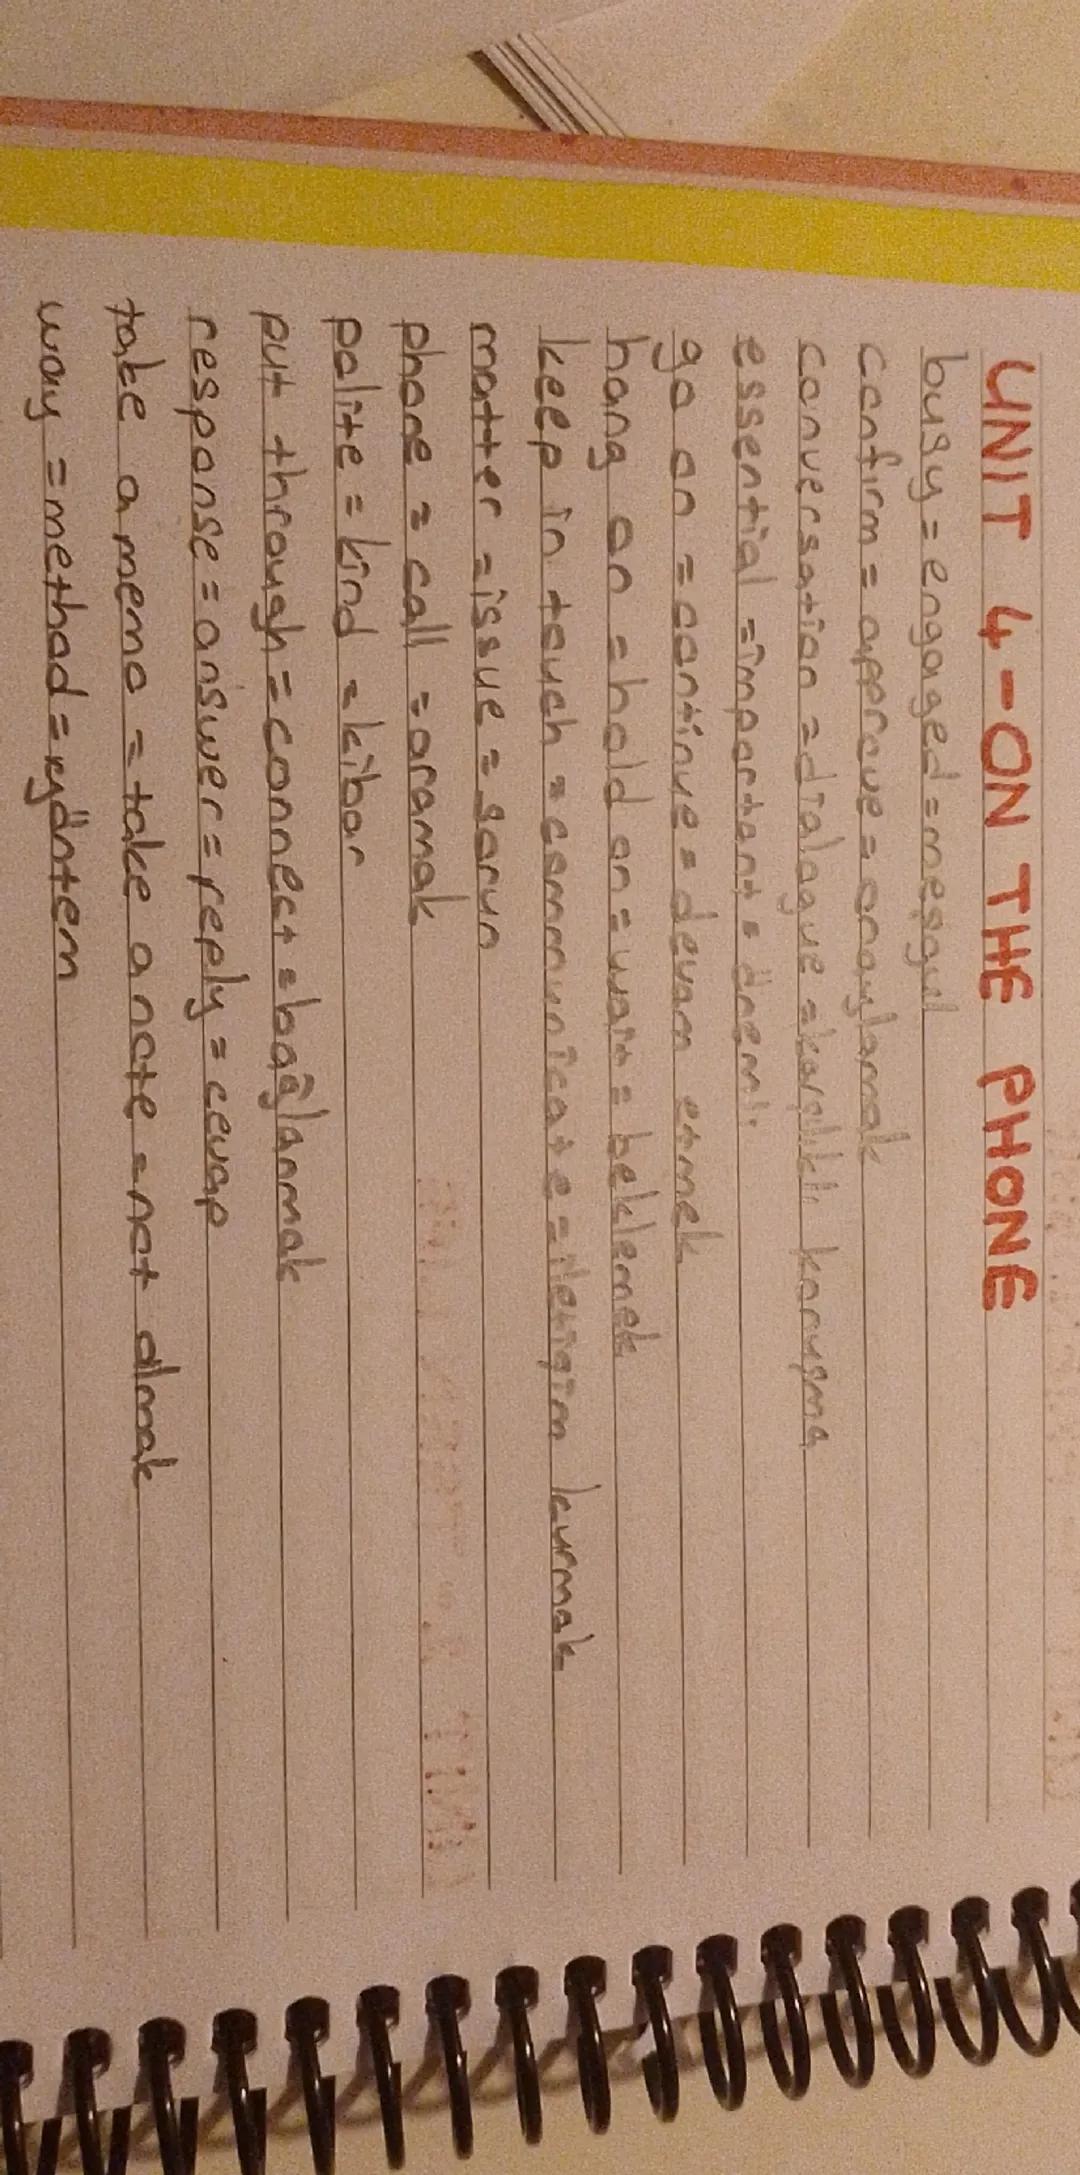 UNIT 4-ON THE PHONE
busy = engaged = meşgul
confirm = approve = onaylamak
conversation = dialogue = karşılıklı konuşma
essential = important = önemli
go on = continue = devam etmek
hang on = hold on = wait = beklemek
keep in touch = communicate = iletişim kurmak
matter = issue = sorun
phone = call = aramak
polite = kind = kibar
put through = connect = bağlanmak
response = answer = reply = cevap
take a memo = take a note = not almak
way = method = yöntem